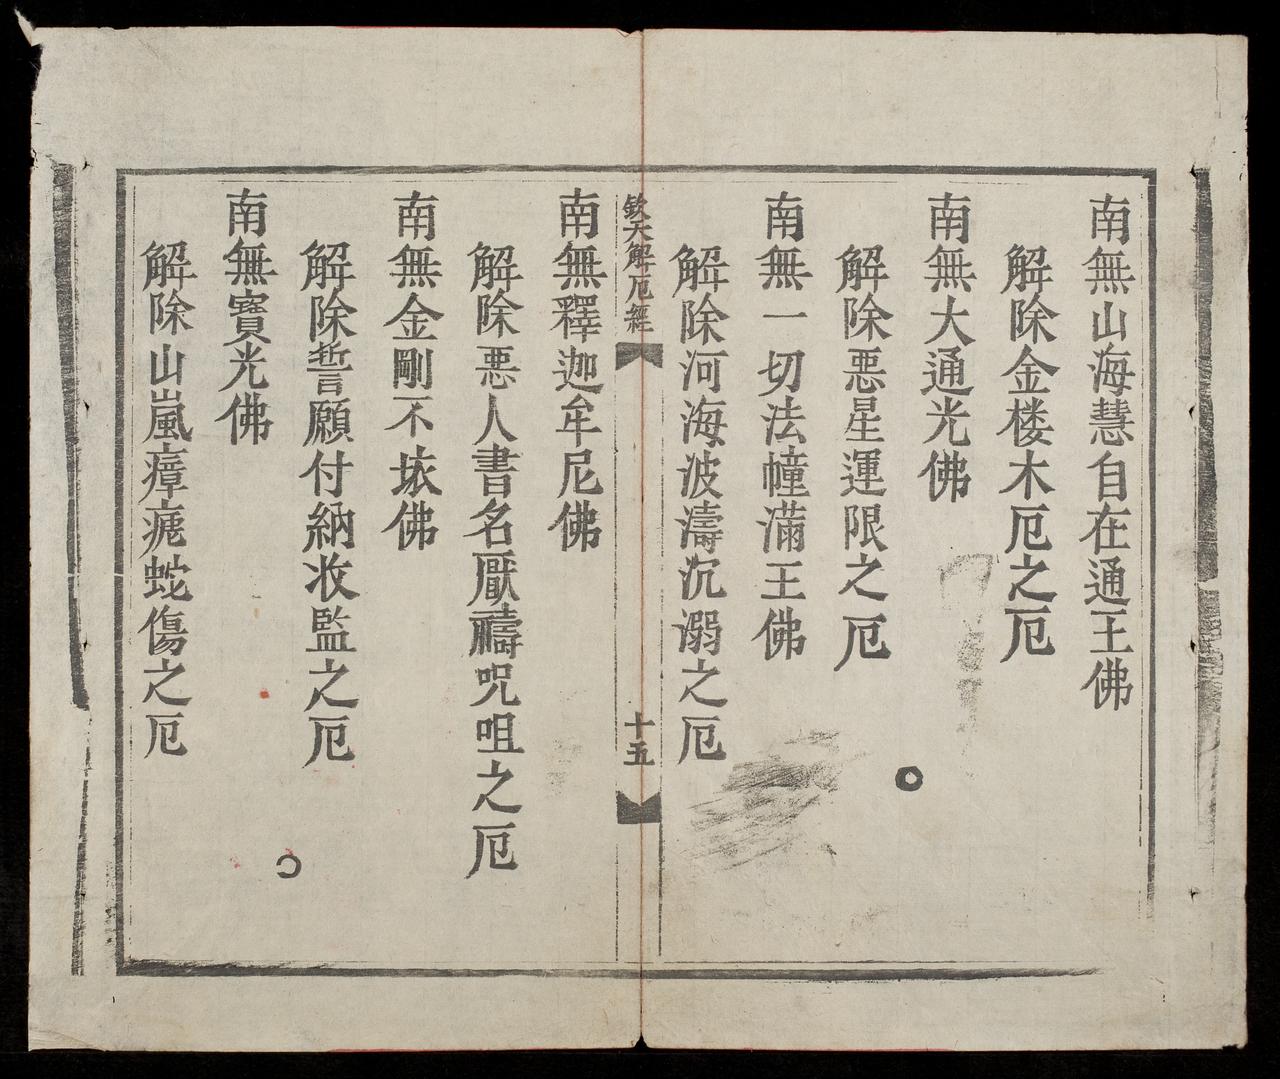 南無山海慧自在通王佛
解除金楼木厄之厄
南無大通光佛
解除悪星運限之厄
南無一切法幢滿王佛
解除河海波濤沉溺之厄
欽天解厄經
十五
南無釋迦牟尼佛
解除悪人書名厭禱呪咀之厄
南無金剛不㧞佛
解除誓願付納收監之厄
南無寶光佛
解除山嵐瘴𤸁蛇傷之厄